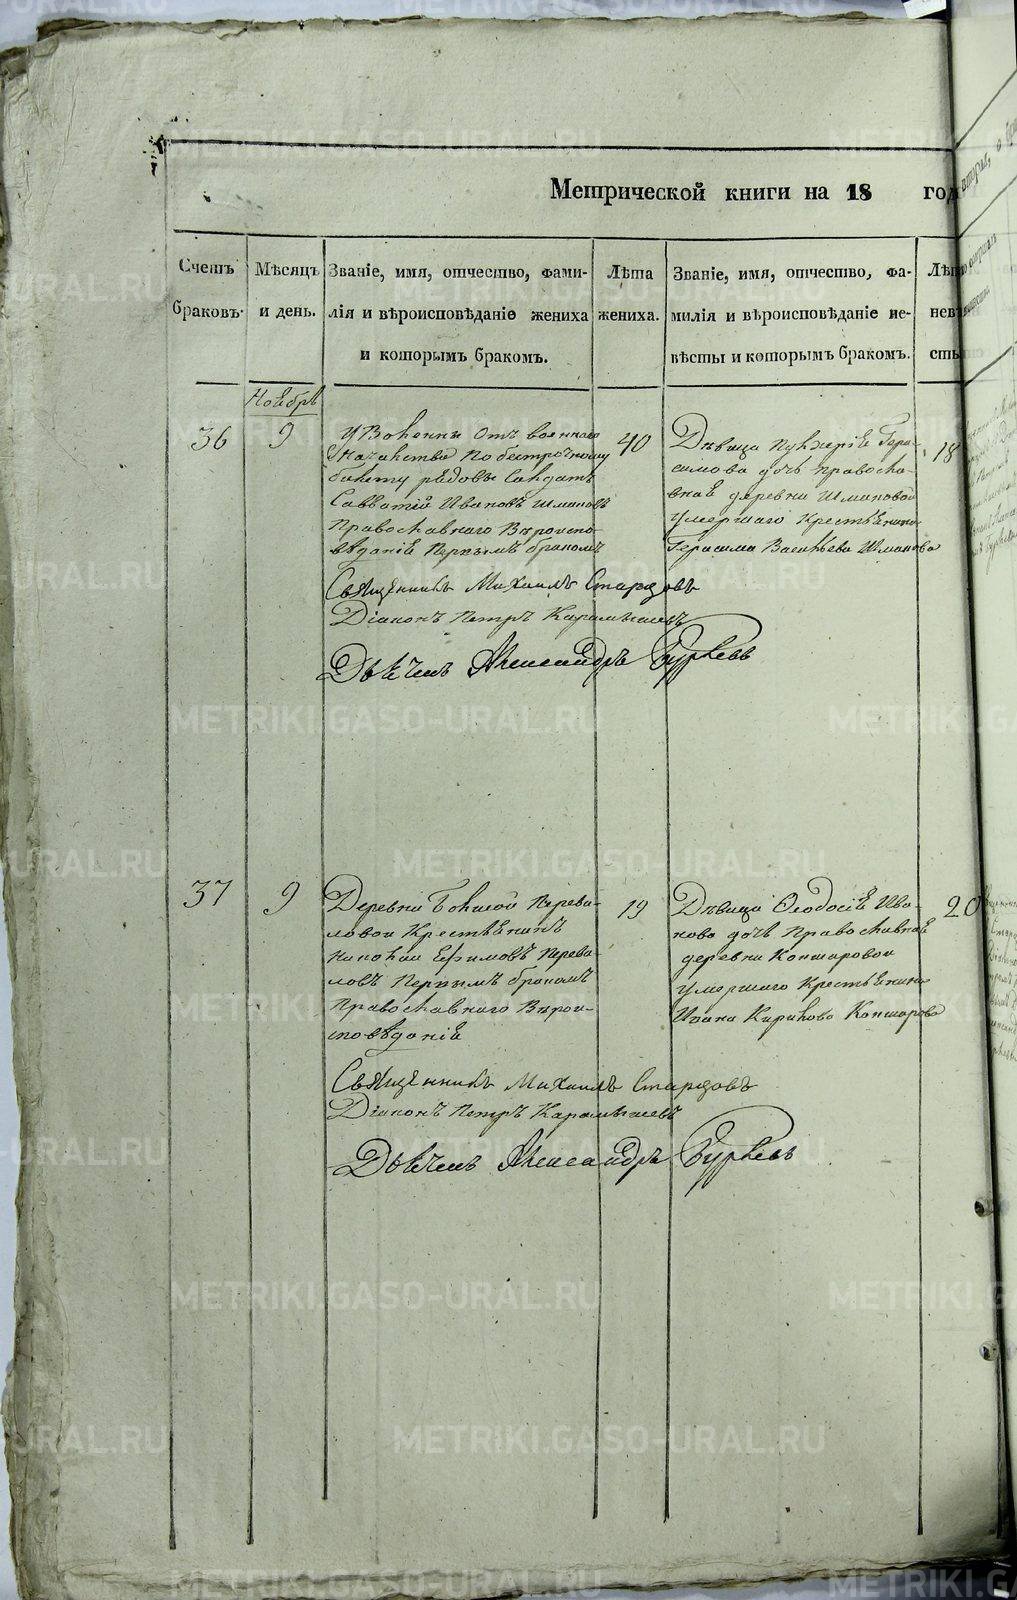 Метрической книги на 18 год
Счетъ браковъ.
Мѣсяцъ и день.
Званіе, имя, отчество, фами-
лія и вѣроисповѣданіе жениха
и которымъ бракомъ.
Лѣта
жениха.
Званіе, имя, отчество, фа-
милія и вѣроисповѣданіе не-
вѣсты и которымъ бракомъ.
Лѣт
нев
сты
Ноябрь
36
9
Уволенны отъ военнаго
Началства по безсрочному
билету рядовъ Салдатъ
Савватій Ивановъ Шмаковъ
Православнаго Вѣроиспо-
вѣданія Первымъ бракомъ
40
Дѣвица Пулхерія Гера-
симова дочь Православ-
ная деревни Шмаковой
умершаго Крестьянина
Герасима Васильева Шмакова
18
Священникъ Михаилъ Старцовъ
Діаконъ Петръ Карамышевъ
Дьячекъ Александръ
37
9
Деревни Перева-
ловой Крестьянинъ
Ефимовъ Перева-
ловъ Первымъ бракомъ
Православнаго Вѣрои-
сповѣданія
19
Дѣвица Ѳеодосія Ива-
нова дочь Православная
деревни Кокшаровой
умершаго Крестьянина
Ивана Кирилова Кокшарова
20
Священникъ Михаилъ Старцовъ
Діаконъ Петръ Карамышевъ
Дьячекъ Александръ
METRIKI.GASO-URAL.RU